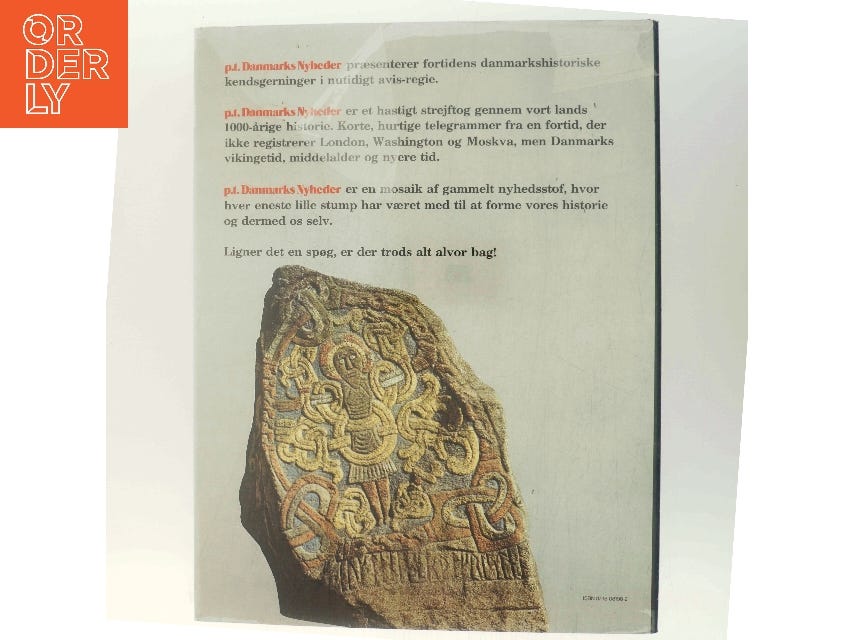 ORDERLY
p.t. Danmarks Nyheder præsenterer fortidens danmarkshistoriske
kendsgerninger i nutidigt avis-regie.
p.t. Danmarks Nyheder er et hastigt strejftog gennem vort lands
1000-årige historie. Korte, hurtige telegrammer fra en fortid, der
ikke registrerer London, Washington og Moskva, men Danmarks
vikingetid, middelalder og nyere tid.
p.t. Danmarks Nyheder er en mosaik af gammelt nyhedsstof, hvor
hver eneste lille stump har været med til at forme vores historie
og dermed os selv.
Ligner det en spøg, er der trods alt alvor bag!
ISBN